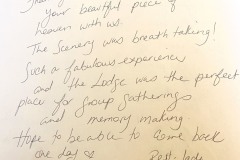 your beautiful piece of
heaven with us.
The Scenery was breath taking!
Such a fabulous experience
and the Lodge was the perfect
place for group gatherings
and memory making.
Hope to be able to come back
one day ♡